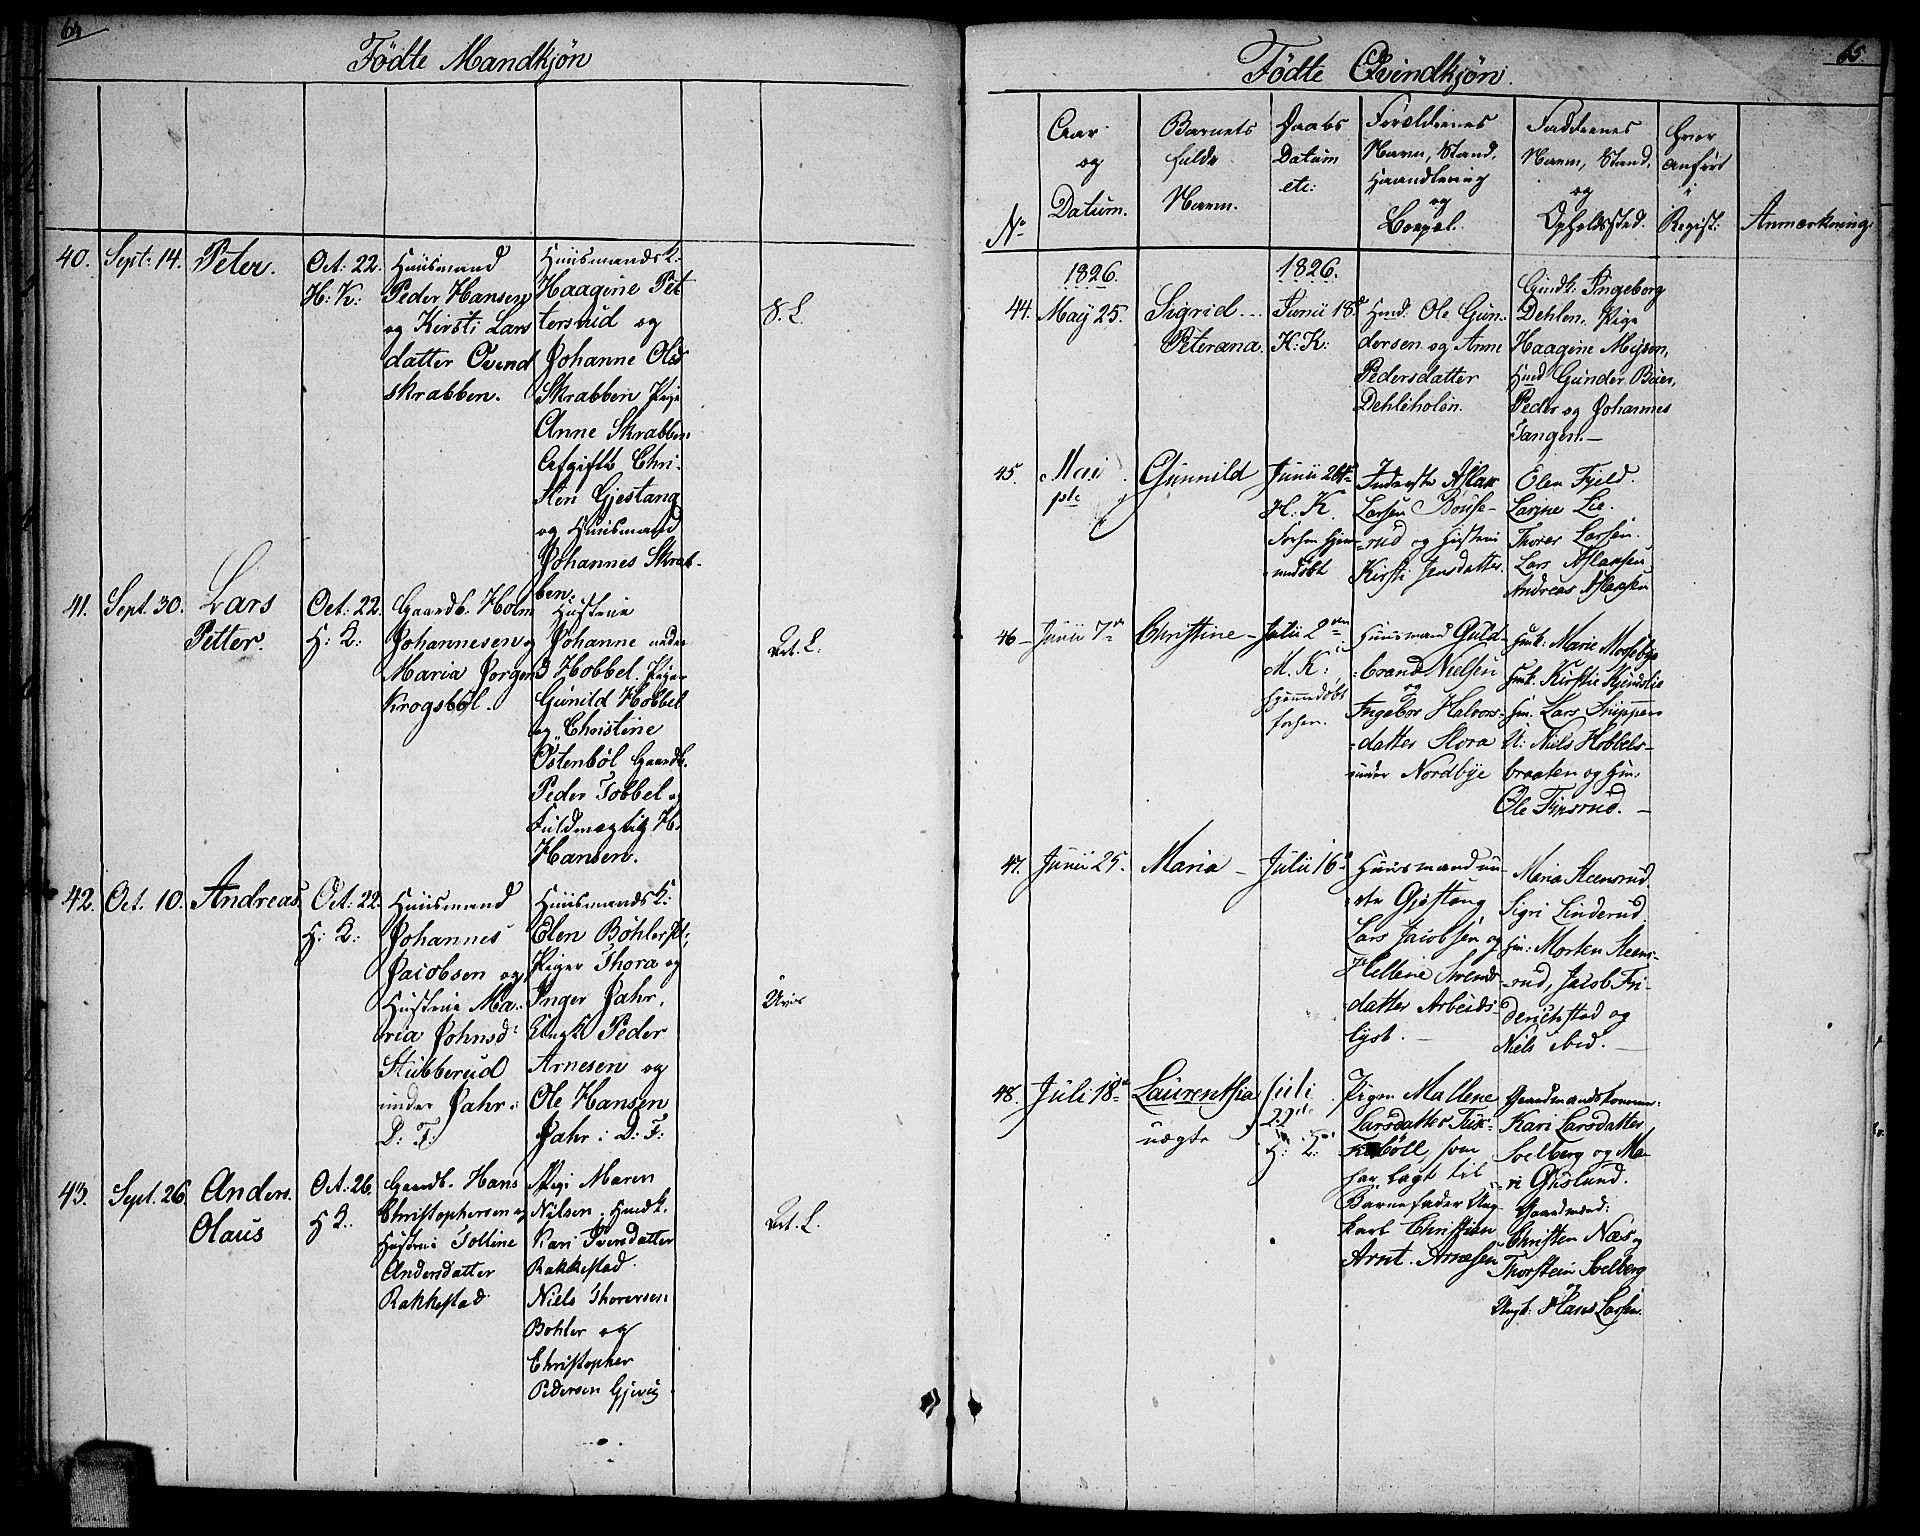 64
Födte Mandkjön
40.
Sept: 14.
Peter.
Oct: 22.
H: K:
Huusmand
Peder Hansen
og Kirsti Lars
datter Ovend
skrabben.
Huusmandsk:
Haagine Pet
tersrud og
Johanne Ols
Skrabben Pige
Anne Skrabben
Afgifts Chri-
sten Gjestang
og Huusmand
Johannes Skrab-
ben.
S. L.
41.
Sept. 30.
Lars
Petter.
Oct: 22.
H: K:
Gaardb. Holm
Johannesen og
Maria Jörgens
Krogsböl.
Hustrue
Johanne nedre
Hobbel. Piger
Gunild Hobbel
og Christine
Östenböl Gaardb.
Peder Tobbel og
Fuldmægtig H.
Hansen.
Vet. L.
42.
Oct. 10.
Andreas
Oct: 22.
H: K:
Huusmand
Johannes
Jacobsen og
Hustrue Ma-
ria Johnsd:
Stubberud
under Jahr:
D: F:
Huusmandsk:
Elen Böhler
Piger Thora og
Inger Jahr,
Ungk Peder
Arnesen og
Ole Hansen
Jahr: D: F:
43.
Sept. 26
Anders
Olaus
Oct: 26.
H K.
Gaardb. Hans
Christophersen og
Hustrue Tolline
Andersdatter
Rakkestad
Pige Maren
Nilsen. Huusk.
Kari Iversdatter
Rakkestad.
Niels Thoresen
Bohler og
Christopher
Pedersen Gjevig
Vet. L.
65.
Födte Qvindkjön.
No
Aar
og
Datum.
Barnets
fulde
Navn.
Daabs
Datum
etc:
Forældrenes
Navn, Stand,
Haandtering
og
Boepæl.
Faddernes
Navn, Stand,
og
Opholdssted.
Hvor
anfört
i
Regist:
Anmærkning.
1826.
1826.
44.
May 25.
Sigrid
Peterana.
Junii 18.
H: K:
Huusd. Ole Gun-
dersen og Anne
Pedersdatter
Dehliholen.
Ingeborg
Dehlen. Pige
Haagine Mysen,
Huusd Gunder Buer,
Peder og Johannes
Tangen.
45.
Mai
Gunnild
Junii 24de
H: K.
forhen hjem-
medöbt
Inderste Aslak
Larsen
rud og Hustrue
Kirsti Jensdatter.
Elen Fjeld.
Larine Lie.
Thorer Larsen.
Lars Aslaksen
Andreas Aslaksen
46
Junii 7de
Christine
Julii 2den
M. K:
hjemmedöbt
forhen.
Huusmand Guld-
brand Nielsen
og
Ingebor Halvors-
datter Flora
under Nordbye
Hmk: Marie Mosebye
Hmk: Kirstie
Hm. Lars
U: Niels Hobbels-
braaten og Hm:
Ole
47.
Junii 25.
Maria
Julii 16de
Huusmand un-
der Gjestang
Lars Jacobsen og
Hellene Svends-
datter Arbeids-
lyst.
Maria Steensrud
Sigri Linderud
Hm: Morten Steens-
rud, Jacob Fri-
derichstad og
Niels ibid.
48.
Juli 18de
Laurenthia
uægte
Juli
22de
H: K:
Pigen Mallene
Larsdatter
böll, som
har lagt til
Barnefader Ung-
karl Christian
Arnt. Arnesen
Gaardmandskonen:
Kari Larsdatter
Soelberg og Ma-
ri Öxlund.
Gaardmænd:
Christen Næs og
Thorstein Soelberg
og
Ungk: Hans Larsen.